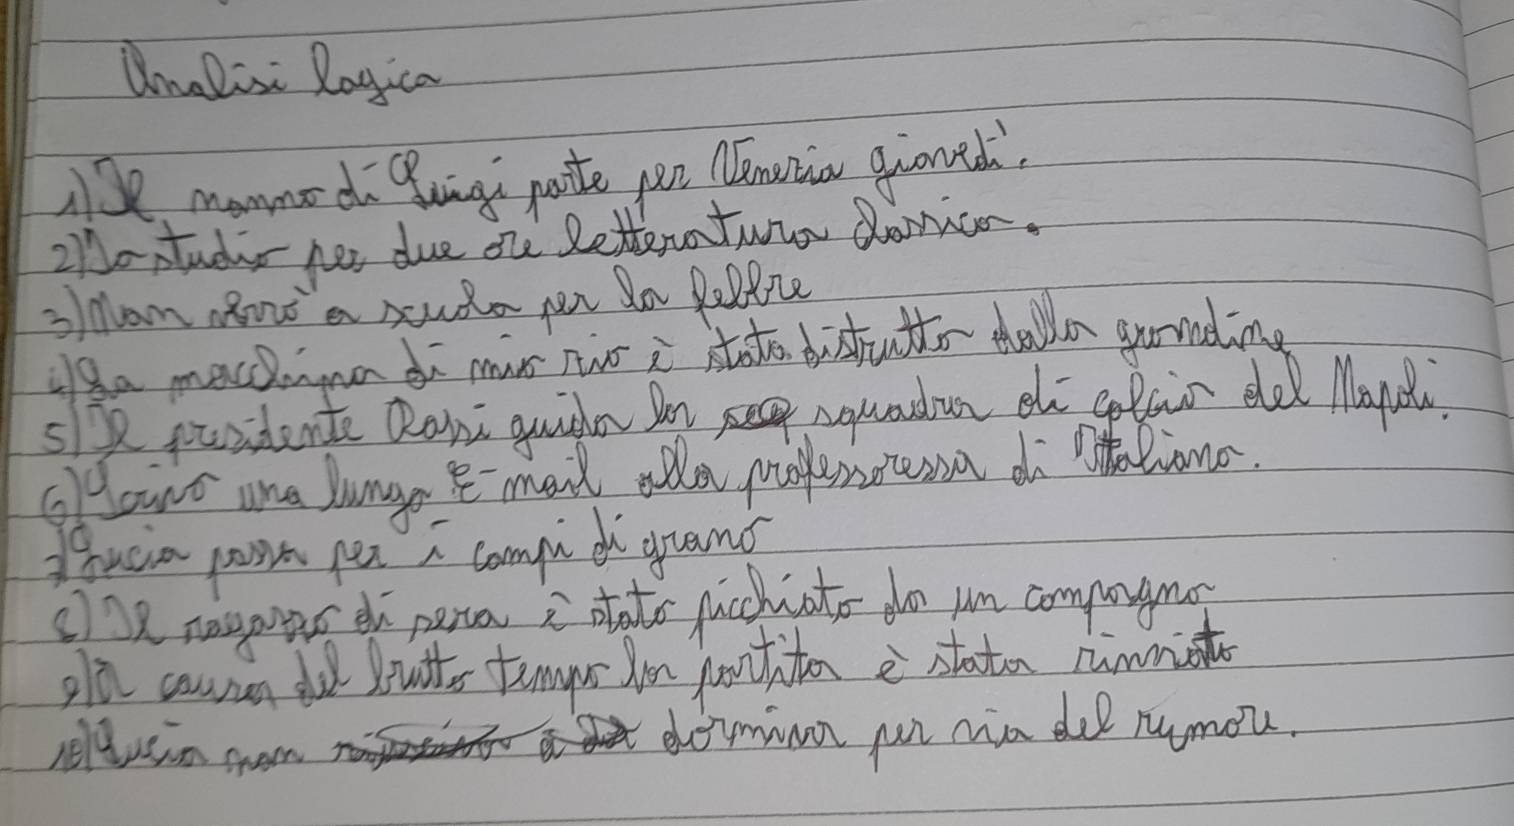 Analisi logica
1) Il nonno di Luigi parte per Venezia giovedì.
2) Io studio per due ore letteratura classica.
3) Non verrò a scuola per la febbre
4) La macchina di mio zio è stata distrutta dalla grandine
5) Il presidente Rossi guida la squadra di calcio del Napoli.
6) Scrivo una lunga E-mail alla professoressa di Italiano.
7) Lucia passa per i campi di grano
8) Il ragazzo di è stato picchiato da un compagno
9) A causa del brutto tempo la partita è stata
10) Lucia non dormiva per via del rumore.